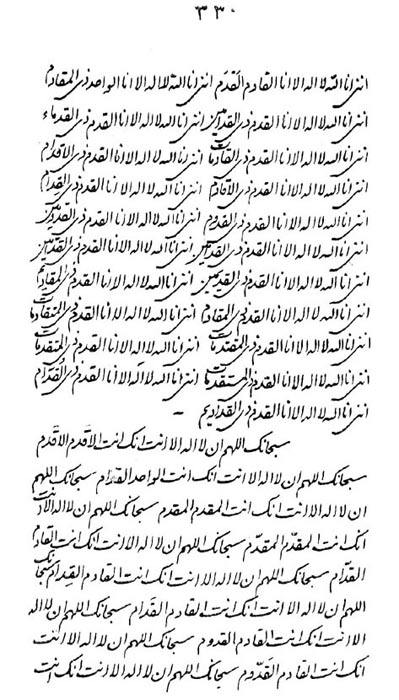 ٣٣٠
اننی انا الله لا اله الا انا القادم القدم اننی انا الله لا اله الا انا الواحد ذی المقادم
اننی انا الله لا اله الا انا القدم ذی القدامین اننی انا الله لا اله الا انا القدم ذی القدماء
اننی انا الله لا اله الا انا القدم ذی القادمات اننی انا الله لا اله الا انا القدم ذی الاقدام
اننی انا الله لا اله الا انا القدم ذی الاقادم اننی انا الله لا اله الا انا القدم ذی القدام
اننی انا الله لا اله الا انا القدم ذی القدوم اننی انا الله لا اله الا انا القدم ذی
اننی انا الله لا اله الا انا القدم ذی اننی انا الله لا اله الا انا القدم ذی
اننی انا الله لا اله الا انا القدم ذی القدیمین اننی انا الله لا اله الا انا القدم ذی المقادیم
اننی انا الله لا اله الا انا القدم ذی المقادم اننی انا الله لا اله الا انا القدم ذی
اننی انا الله لا اله الا انا القدم ذی المقدمات اننی انا الله لا اله الا انا القدم ذی المتقدمات
اننی انا الله لا اله الا انا القدم ذی المستقدمات اننی انا الله لا اله الا انا القدم ذی القدام
اننی انا الله لا اله الا انا القدم ذی القدادیم
سبحانک اللهم ان لا اله الا انت انک انت الاقدم الاقدم
سبحانک اللهم ان لا اله الا انت انک انت الواحد القدام سبحانک اللهم
ان لا اله الا انت انک انت المقدم المقدم سبحانک اللهم ان لا اله الا انت
انک انت المقدم المقدم سبحانک اللهم ان لا اله الا انت انک انت القادم
القدام سبحانک اللهم ان لا اله الا انت انک انت القادم القدام سبحانک
اللهم ان لا اله الا انت انک انت القادم القدام سبحانک اللهم ان لا اله
الا انت انک انت القادم القدوم سبحانک اللهم ان لا اله الا انت
انک انت القادم القدوم سبحانک اللهم ان لا اله الا انت انک انت